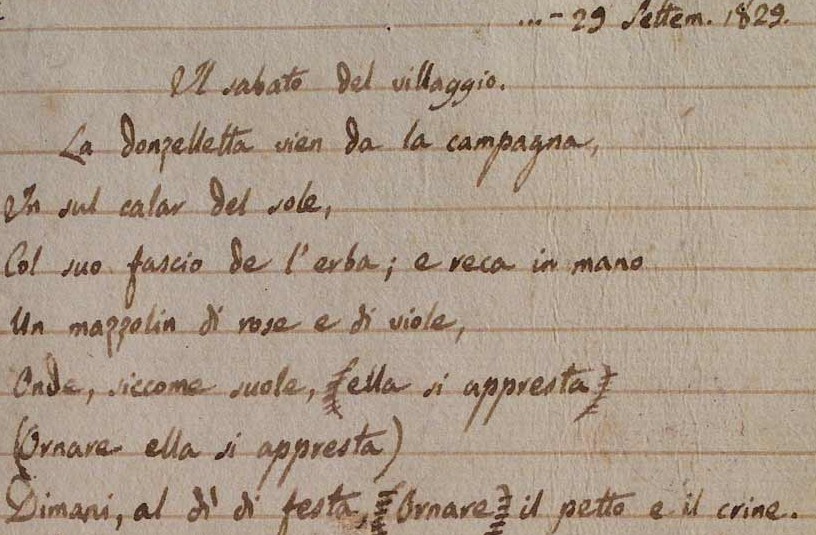 ...-29 Settem. 1829.
Il sabato del villaggio.
La donzelletta vien da la campagna,
In sul calar del sole,
Col suo fascio de l'erba; e reca in mano
Un mazzolin di rose e di viole,
Onde, siccome suole, (ella si appresta)
(Ornare ella si appresta)
Dimani, al dì di festa, (Ornare) il petto e il crine.